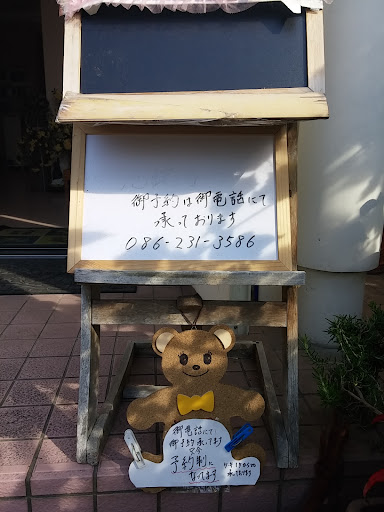 御予約は御電話にて
承っております
086-231-3586
御電話にて
御予約承ってます
完全
予約制に
なってます